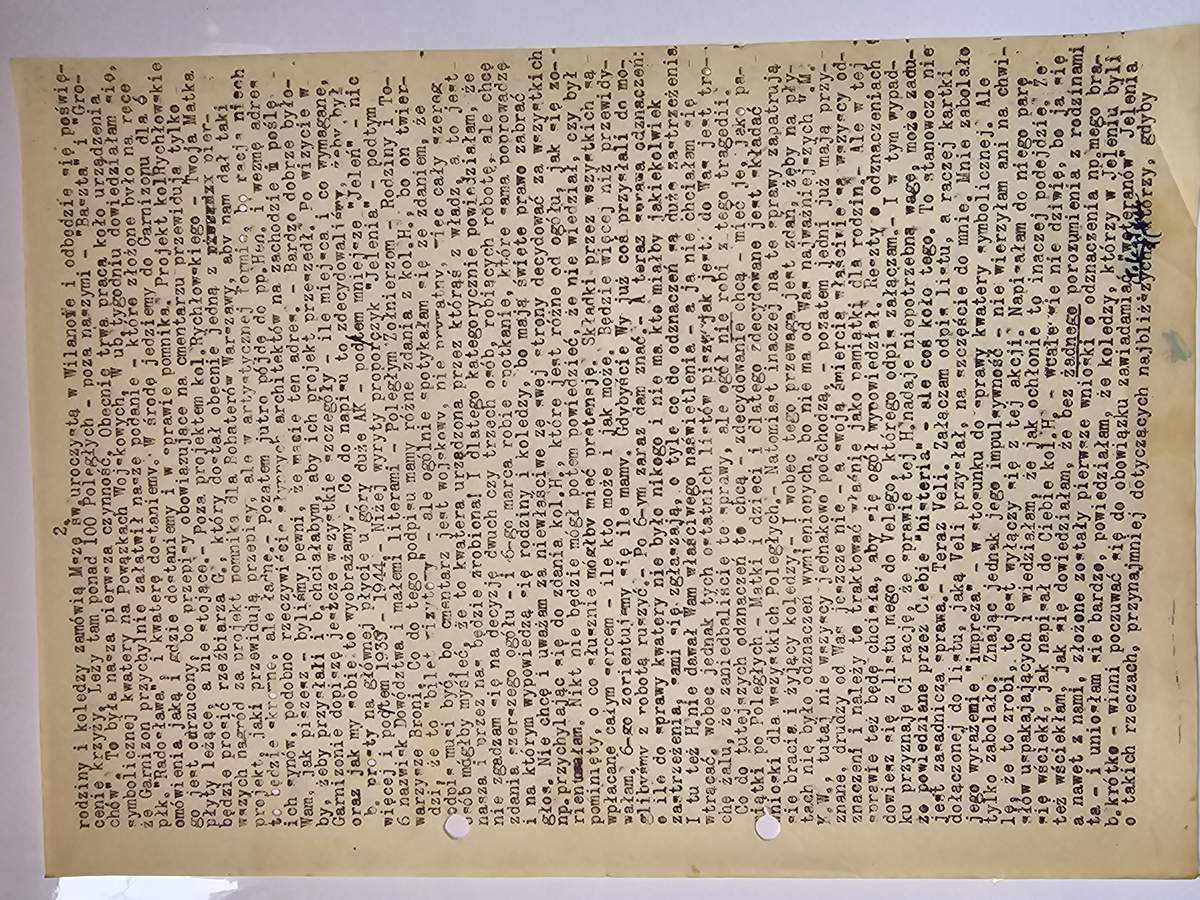 2.
rodziny i koledzy zamówią Mszę św. uroczystą w Wilanowie i odbędzie się poświę-
cenie krzyży. Leży tam ponad 100 Poległych - poza naszymi - "Baszta" i "Gro-
chów". To była nasza pierwsza czynność. Obecnie trwa praca koło urządzenia
symbolicznej kwatery na Powązkach Wojskowych. W ub. tygodniu dowiedziałam się,
że Garnizon przychylnie załatwił nasze podanie - które złożone było na ręce
płk. "Radosława", i kwaterę dostaniemy. W środę jedziemy do Garnizonu dla ó
omówienia jaką i gdzie dostaniemy i w sprawie pomnika. Projekt kol. Rychłowskie
go jest odrzucony, bo przepisy obowiązujące na cmentarzu przewidują tylko
płyty leżące, a nie stojące.- Poza projektem kol. Rychłowskiego - Twoja Matka
będzie prosić rzeźbiarza G., który dostał obecnie jedną z pier-
wszych nagród za projekt pomnika dla Bohaterów Warszawy, aby nam dał taki
projekt, jaki przewidują przepisy, ale w artystycznej formie, bo racja niech
to będzie skromne, ale ładne.- Pozatem jutro pójdę do pp. Hen. i wezmę adres
ich synów, podobno rzeczywiście słynnych architektów na zachodzie i poślę
Wam, jak piszesz - byliśmy pewni, że macie ten adres. - Bardzo dobrze było-
by, żeby przysłali i b. chciałabym, aby ich projekt przeszedł. Po wizycie w
Garnizonie dopiszę jeszcze wszystkie szczegóły - ile miejsca i co wymagane,
oraz jak my sobie to wyobrażamy.- Co do napisu to zdecydowaliśmy, żeby był
b. prosty na głównej płycie u góry duże AK - pod niem znaczek "Jeleń" - nic
więcej i potem 1939 - 1944. Niżej wyryty proporczyk "Jelenia" - podtym
6 nazwisk Dowództwa i małemi literami - Poległym Żołnierzom - Rodziny i To-
warzysze Broni. Co do tego podpisu mamy różne zdania z kol. H., bo on twier-
dzi, że to "bilet wizytowy" - ale ogólnie spotykałam się ze zdaniem, że
podpis musi być, bo cmentarz jest wojskowy, nie prywatny, więc cały szereg
osób mógłby myśleć, że to kwatera urządzona przez którąś z władz, a to jest
nasza i przez nas będzie zrobiona! I dlatego kategorycznie powiedziałam, że
nie zgadzam się na decyzję dwuch czy trzech osób, robiących robotę, ale chcę
zdania szerszego ogółu - i 6-go marca robię spotkanie, które sama poprowadzę
i na którym wypowiedzą się rodziny i koledzy, bo mają święte prawo zabrać
głos. Nie chcę i uważam za niewłaściwe ze swej strony decydować za wszystkich
np. przychylając się do zdania kol. H., które jest różne od ogółu, jak się zo-
rientowałam. Nikt nie będzie mógł potem powiedzieć, że nie wiedział, czy był
pominięty, o co słusznie mógłby mieć pretensję. Składki przez wszystkich są
wpłacane całym sercem - ile kto może i jak może, więcej niż przewidy-
wałam. 6-go zorientujemy się ile mamy. Gdybyście Wy już coś przysłali do mo-
glibyśmy z robotą ruszyć.- Po 6-ym zaraz dam znać - A teraz sprawa odznaczeń:
o ile do sprawy kwatery nie było nikogo i nie ma, kto miałby jakiekolwiek
zastrzeżenia, sami się zgłaszają, o tyle co do odznaczeń są duże zastrzeżenia
I tu też H. nie dawał Wam właściwego naświetlenia - a ja nie chciałam się
wtrącać, wobec jednak tych ostatnich listów piszę jak jest: do Was jest tro-
chę żalu, że zaniedbaliście te sprawy, ale ogół nie robi z tego tragedii.
Co do tutejszych odznaczeń to chcą - zdecydowanie chcą - mieć je, jako pa-
miątki po Poległych - Matki i dzieci i dlatego zdecydowane jest składać
wnioski dla wszystkich Poległych.- Natomiast inaczej na te sprawy zapatrują
się bracia i żyjący koledzy.- I wobec tego przewagą jest zdań, żeby na pły-
tach nie było odznaczeń wymienionych, bo nie ma od Was najważniejszych V.M.
K.W., tutaj nie wszyscy jednakowo podchodzą, - pozatem jedni już mają przy-
znane, drudzy od Was jeszcze nie - a swoją śmiercią właściwie są wszyscy od-
znaczeni i należy to traktować właśnie jako pamiątki dla rodzin.- Ale w tej
sprawie też będę chciała, aby się ogół wypowiedział. Resztę o odznaczeniach
dowiesz się z listu mego do Velego, którego odpis załączam.- I w tym wypad-
ku przyznaję Ci rację, że sprawie tej H. nadaje niepotrzebną wagę, może zadu-
że powiedziane przez Ciebie "histeria" - ale coś koło tego. To stanowczo nie
jest zasadnicza sprawa.- Teraz Veli. Załączam odpis listu, a raczej kartki
dołączonej do listu, jaką Veli przysłał, na szczęście do mnie. Mnie zabolało
jego wyrażenie "impreza" - w stosunku do sprawy kwatery symbolicznej. Ale
tylko zabolało. Znając jednak jego impulsywność - nie wierzyłam ani na chwi-
lę, że to zrobi, to jest wyłączy się z tej akcji. Napisałam do niego parę
słów uspakajających i wiedziałam, że jak ochłonie to inaczej podejdzie. Że
się wściekł, jak napisał do Ciebie kol. H. - wcale się nie dziwię, bo ja się
też wściekłam, jak się dowiedziałam, że bez żadnego porozumienia z rodzinami
a nawet z nami, złożone zostały pierwsze wnioski o odznaczenia np. mego bra-
ta - i uniosłam się bardzo, powiedziałam, że koledzy, którzy w Jeleniu byli
b. krótko - winni poczuwać się do obowiązku zawiadamiać "weteranów" Jelenia
o takich rzeczach, przynajmniej dotyczących najbliższych, którzy, gdyby